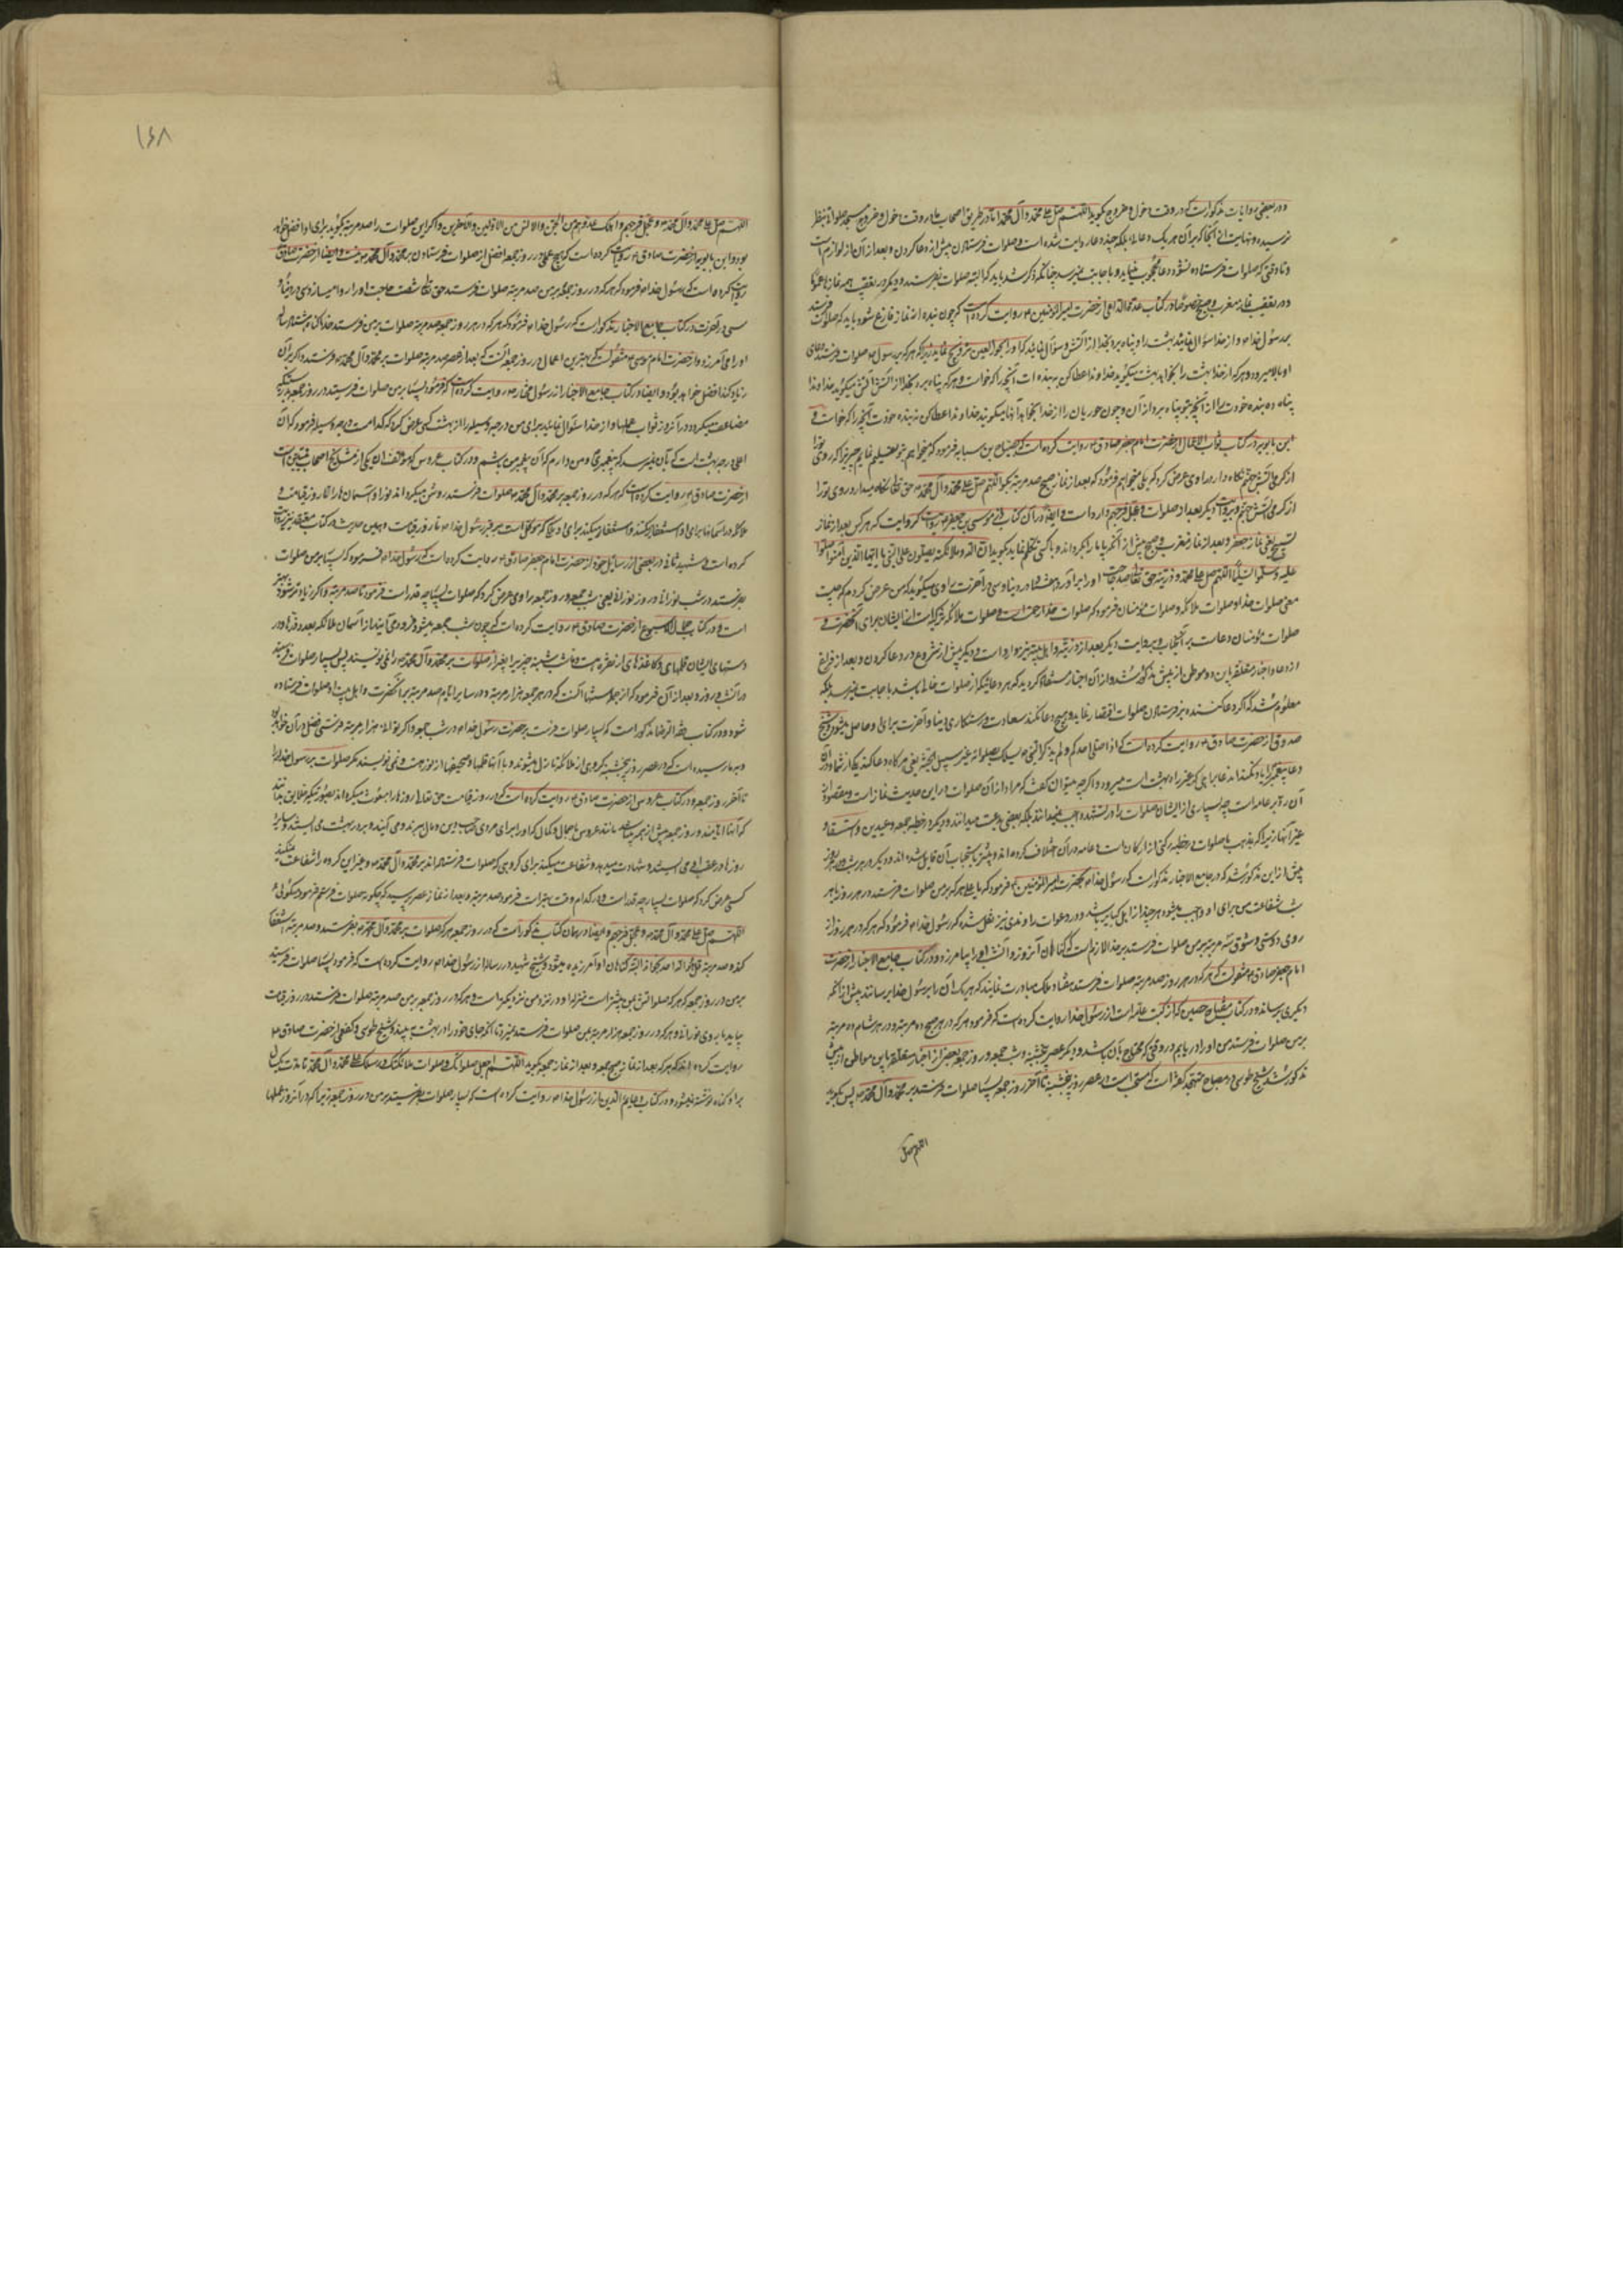 ودر بعضی روایات مذکورست که در وقت دخول و خروج بگوید اللهم صل علی محمد وآل محمد اما در طریق اصحاب ما در وقت دخول و خروج مسجد صلوات بنظر
نرسیده و نهایت از آنجا که برای هر یک دعا بلکه چند دعا روایت شده است و صلوات فرستادن پیش از دعا کردن و بعد از آن از لوازم است
و تا وقتی که صلوات فرستاده نشود دعا محجوب میماند و باجابت نمیرسد چنانکه ذکر شد باید که البته صلوات بفرستد و دیگر در تعقیب همه نمازها عموما
و در تعقیب نماز مغرب و صبح خصوصا در کتاب عدة الداعی از حضرت امیرالمؤمنین روایت کرده است که چون بنده از نماز فارغ شود باید که صلوات
بر رسول خدا و از خدا سؤال نماید بهشت را و پناه برد بخدا از آتش و سؤال نماید که او را بحور العین تزویج نماید زیرا که هر که بر رسول صلوات فرستد دعای
او بالا میرود و هر که از خدا بهشت را بخواهد بهشت میگوید خداوندا عطا کن به بنده ات آنچه را که خواست و هر که پناه برد بخدا از آتش آتش میگوید خداوندا
پناه ده بنده خود را از آنچه بتو پناه برد از آن و چون حوریان را از خدا بخواهد آنها میگویند خداوندا عطا کن به بنده خود آنچه را که خواست و
ابن بابویه در کتاب ثواب الاعمال از حضرت امام جعفر صادق روایت کرده است که بصباح بن سیابه فرمود که میخواهی بتو تعلیم نمایم چیزی را که روی تو را
از گرمی آتش جهنم نگاه دارد راوی عرض کرد که بلی میخواهم فرمود که بعد از نماز صبح صد مرتبه بگو اللهم صل علی محمد وآل محمد حق تعالی نگاه میدارد روی تو را
از گرمی آتش جهنم و بروایت دیگر بعد از صلوات وعجل فرجهم وارد است و ایضا در آن کتاب از موسی بن جعفر روایت که هر کس بعد از نماز
صبح یعنی نماز و بعد از نماز مغرب و صبح پیش از آنکه پاها را بگرداند و با کسی تکلم نماید بگوید ان الله وملائکته یصلون علی النبی یا ایها الذین آمنوا صلوا
علیه وسلموا تسلیما اللهم صل علی محمد وذریته حق تعالی صد حاجت او را برآورد در دنیا و سی در آخرت راوی میگوید که من عرض کردم که چیست
معنی صلوات خدا و صلوات ملائکه و صلوات مؤمنان فرمود که صلوات خدا رحمت است و صلوات ملائکه تزکیه است از ایشان برای آنحضرت و
صلوات مؤمنان دعاست برای آنجناب و بروایت دیگر بعد از ذریته و اهل بیته نیز وارد است و دیگر پیش از شروع در دعا کردن و بعد از فراغ
از دعا و اخبار متعلقه باین دو موطن از پیش مذکور شد و از آن اخبار مستفاد گردید که هر دعائیکه از صلوات خالی باشد باجابت نمیرسد بلکه
معلوم شد که اگر دعا کننده بر فرستادن صلوات اقتصار نماید و هیچ دعا نکند سعادت و رستگاری دنیا و آخرت برای او حاصل میشود و شیخ
صدوق از حضرت صادق روایت کرده است که اذا صلی احدکم ولم یذکر النبی یسلک بصلوته غیر سبیل الجنه یعنی هرگاه دعا کند یکی از شما و در آن
دعا پیغمبر را یاد نکند آن دعا براهی که غیر راه بهشت است میرود و اگرچه میتوان گفت که مراد از آن صلوات در این حدیث نماز است و مقصود از
آن رد بر عامه است چه بسیاری از ایشان صلوات را در تشهد واجب نمیدانند بلکه بعضی بدعت میدانند و دیگر در خطبه جمعه و عیدین و استسقا و
غیر آنها زیرا که بمذهب ما صلوات در خطبه رکنی از ارکان است و عامه در آن اختلاف کرده اند و بیشتر باستحباب آن قایل شده اند و دیگر در هر شب و در هر روز
پیش از این مذکور شد که در جامع الاخبار مذکورست که رسول خدا بحضرت امیرالمؤمنین فرمود که یا علی هر که بر من صلوات فرستد در هر روز یا هر
شب شفاعت من برای او واجب میشود هر چند از اهل کبایر باشد و در دعوات راوندی نیز نقل شده که رسول خدا فرمود که هر که در هر روز از
روی دوستی و شوق سه مرتبه بر من صلوات فرستد بر خدا لازمست که گناهان آنروز و آنشب او را بیامرزد و در کتاب جامع الاخبار از حضرت
امام جعفر صادق منقولست که هر که در هر روز صد مرتبه صلوات فرستد هفتاد ملک مبادرت نمایند که هر یک آن را برسول خدا برسانند پیش از آنکه
دیگری برساند و در کتاب مفتاح حسین که از کتب عامه است از رسول خدا روایت کرده است که فرمود هر که در هر صبح ده مرتبه و در هر شام ده مرتبه
بر من صلوات فرستد من او را دریابم در وقتی که محتاج بآن باشد و دیگر عصر پنجشنبه و شب جمعه و روز جمعه بعضی از اخبار متعلقه باین مواطن از پیش
مذکور شد شیخ طوسی در مصباح متهجد گفته است که مستحب است در عصر روز پنجشنبه تا آخر روز جمعه بسیار صلوات فرستد بر محمد وآل محمد پس بگوید
اللهم صل
۱۶۸
اللهم صل علی محمد وآل محمد وعجل فرجهم واهلک عدوهم من الجن والانس من الاولین والآخرین و اگر این صلوات را صد مرتبه بگوید برای او افضل خواهد
بود و ابن بابویه از حضرت صادق روایت کرده است که هیچ عملی در روز جمعه افضل از صلوات فرستادن بر محمد وآل محمد نیست و ایضا از حضرت صادق
روایت کرده است که رسول خدا فرمود که هر که در روز جمعه بر من صد مرتبه صلوات فرستد حق تعالی شصت حاجت او را روا میسازد سی در دنیا و
سی در آخرت و در کتاب جامع الاخبار مذکورست که رسول خدا فرمود که هر که در هر روز جمعه صد مرتبه صلوات بر من فرستد خدا گناه هشتاد ساله
او را می آمرزد و از حضرت امام موسی منقولست که بهترین اعمال در روز جمعه آنست که بعد از عصر صد مرتبه صلوات بر محمد وآل محمد فرستد و اگر بر آن
زیاد کند افضل خواهد بود و ایضا در کتاب جامع الاخبار از رسول مختار روایت کرده است که فرمود بسیار بر من صلوات فرستید در روز جمعه زیرا که
مضاعف میگردد در آنروز ثواب عملها و از خدا سئوال نمائید برای من درجه وسیله را از بهشت کسی عرض کرد که کدام است درجه وسیله فرمود که آن
اعلی درجه بهشت است که بآن نمیرسد مگر پیغمبری و من امیدوارم که آن پیغمبر من باشم و در کتاب عروس که مؤلف آن یکی از مشایخ اصحاب شیعه است
از حضرت صادق روایت کرده است که هر که در روز جمعه بر محمد وآل محمد صلوات فرستد روشن میگرداند نور او آسمان ها را تا روز قیامت و
ملائکه در آسمانها برای او استغفار میکنند و استغفار میکند برای او ملکی که موکل است بر قبر رسول خدا تا روز قیامت و همین حدیث را در کتاب مقنعه نیز روایت
کرده است و شهید ثانی در بعضی از رسایل خود از حضرت امام جعفر صادق روایت کرده است که رسول خدا فرموده که بسیار بر من صلوات
بفرستید در شب نورانی و در روز نورانی یعنی شب جمعه و روز جمعه راوی عرض کرد که صلوات بسیار چه قدر است فرمود تا صد مرتبه و اگر زیادتر شود بهتر
است و در کتاب جمال الاسبوع از حضرت صادق روایت کرده است که چون شب جمعه میشود فرود می آیند از آسمان ملائکه بعدد ذره ها و در
دستهای ایشان قلمهای و کاغذهای از نقره است و تا شب شنبه چیزی را بغیر از صلوات بر محمد وآل محمد نمی نویسند پس بسیار صلوات فرستید
در آنشب و روز و بعد از آن فرمود که از جمله سنتها آنست که در هر جمعه هزار مرتبه و در سایر ایام صد مرتبه بر آنحضرت و اهل بیت او صلوات فرستاده
شود و در کتاب فقه الرضا مذکور است که بسیار صلوات فرست بر حضرت رسول خدا در شب جمعه و اگر توانی هزار مرتبه فرستی فضل در آن خواهد بود
و بما رسیده است که در عصر روز پنجشنبه گروهی از ملائکه نازل میشوند و با آنها قلمها و صحیفها از نور هست و نمی نویسند مگر صلوات بر رسول خدا را
تا آخر روز جمعه و در کتاب عروس از حضرت صادق روایت کرده است که در روز قیامت حق تعالی روزها را مبعوث میگرداند بصورتیکه خلایق بدانند
که آنها ایامند و روز جمعه پیش از همه میباشد مانند عروس باجمال و کمال که او را برای مردی صاحب دین و مال میبرند و می آیند و بر در بهشت می ایستد و سایر
روزها در عقب او می ایستند و شهادت میدهد و شفاعت میکند برای گروهی که صلوات فرستاده اند بر محمد وآل محمد و غیر این گروه را شفاعت نمیکند
کسی عرض کرد که صلوات بسیار چه قدر است و در کدام وقت بهتر است فرمود صد مرتبه و بعد از نماز عصر پرسید که چگونه صلوات فرستم فرمود میگوئی
اللهم صل علی محمد وآل محمد وعجل فرجهم و ایضا در همان کتاب مذکورست که در روز جمعه هر که صلوات بر محمد وآل محمد بفرستد و صد مرتبه استغفار
کند و صد مرتبه قل هو الله احد بخواند البته گناهان او آمرزیده میشود و شیخ شهید در رساله از رسول خدا روایت کرده است که فرمود بسیار صلوات فرستید
بر من در روز جمعه که هر که صلواتش بر من بیشتر است منزله او در نزد من نزدیکتر است و هر که در روز جمعه بر من صد مرتبه صلوات فرستد در روز قیامت
بیاید با روی نورانی و هر که در روز جمعه هزار مرتبه بر من صلوات فرستد نمیرد تا آنکه جای خود را در بهشت به بیند و شیخ طوسی و کفعمی از حضرت صادق
روایت کرده اند که هر که بعد از نماز صبح جمعه و بعد از نماز جمعه بگوید اللهم اجعل صلواتک وصلوات ملائکتک ورسلک علی محمد وآل محمد تا مدت یکسال
بر او گناه نوشته نمیشود و در کتاب دعایم الدین از رسول خدا روایت کرده است که بسیار صلوات بفرستید بر من در روز جمعه زیرا که در آنروز عملها